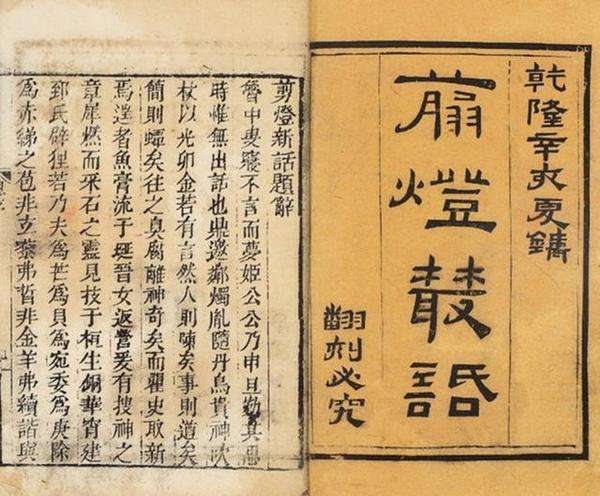 乾隆辛亥夏鐫
翦燈叢話
翻刻必究
剪燈新話題辭
魯中叟寢不言而夢姬公公乃申旦其
時惟無出話也鼎邀鄰燭胤隨丹鳥貰神吹
杖以光卯金若有言然人則竦矣事則道矣
簡則蟫矣往之臭腐離神奇矣而瞿史取新
焉逞者魚膏流于埏晉女返營爰有搜神之
章犀燃而采石之靈見技于桓生銅華宵建
郅氏辟狸若乃夫為芒為貝為宛委為庚除
為赤綈之苞非立黎弗晢非金羊弗續諧與